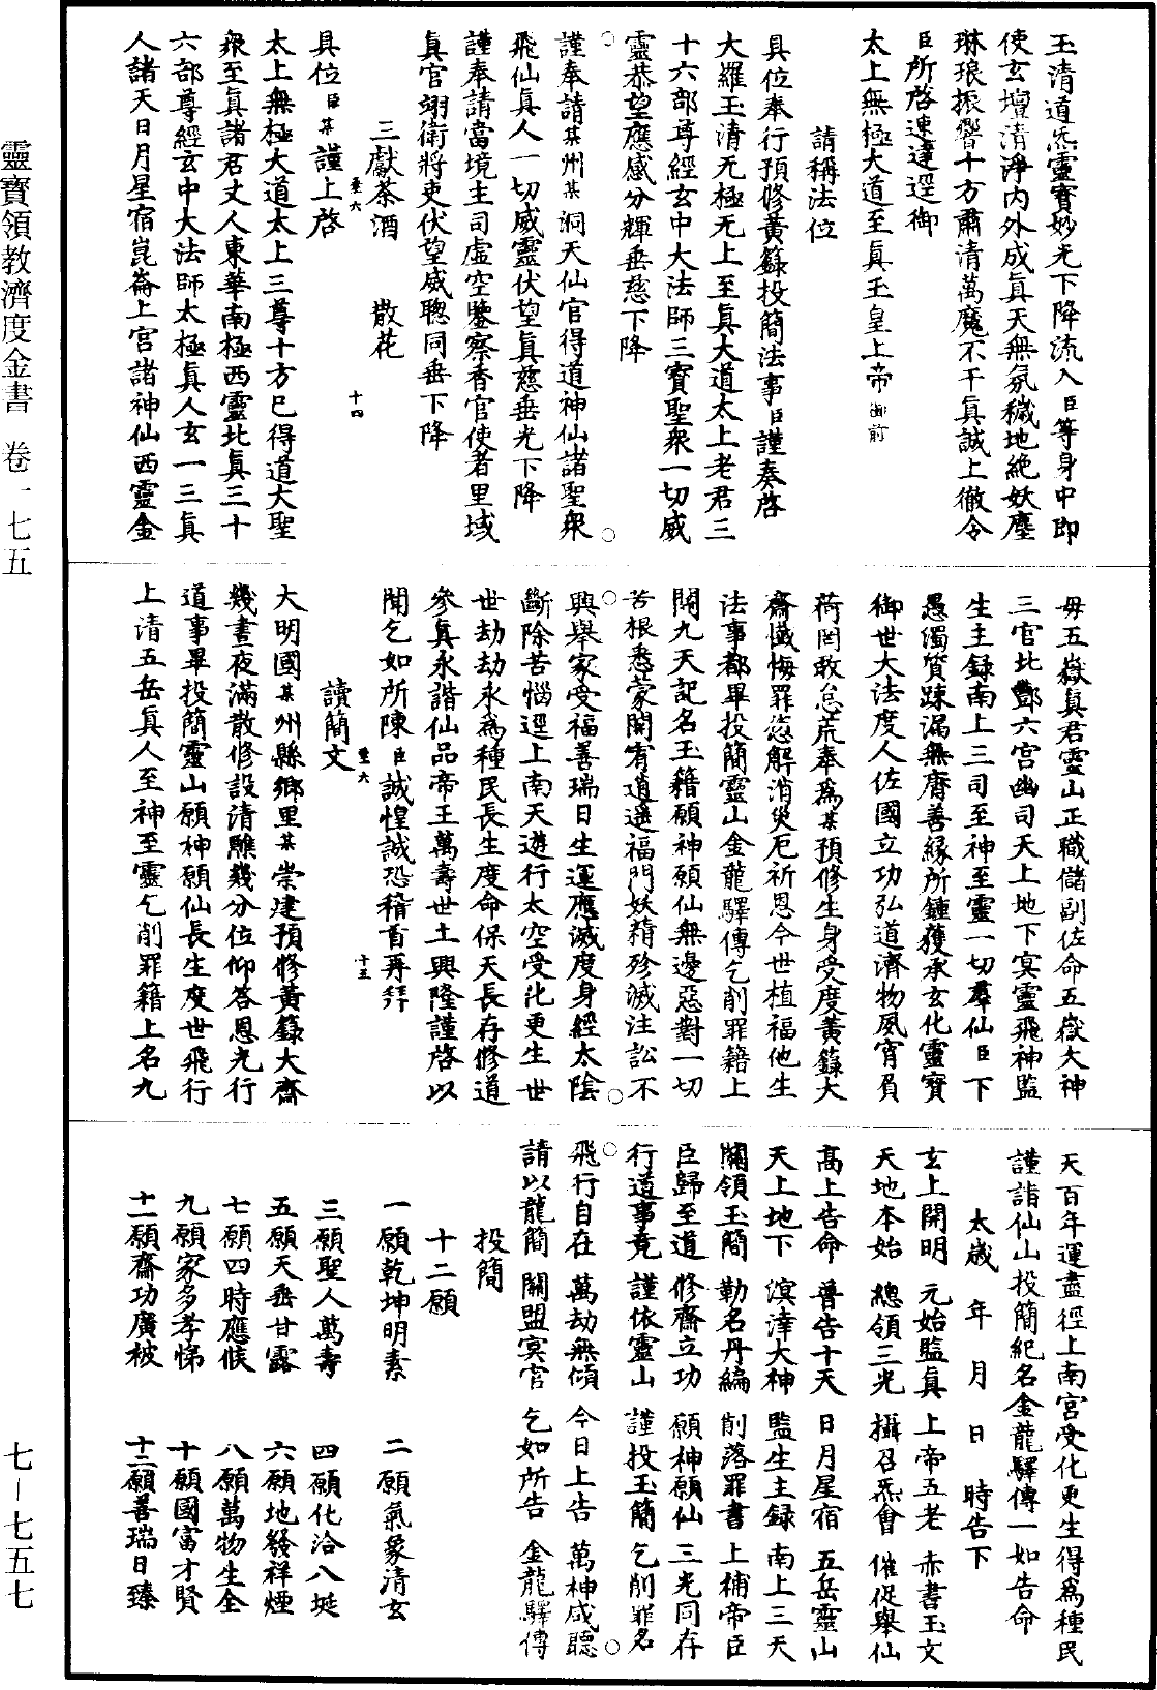 玉清道炁靈寶妙光下降流入臣等身中即
使玄壇清淨內外成真天無氛穢地絕妖塵
琳琅振響十方肅清萬魔不干真誠上徹令
臣所啓速達逕御
太上無極大道至真玉皇上帝御前
請稱法位
具位奉行預修黃籙投簡法事臣謹奏啓
大羅玉清无極无上至真大道太上老君三
十六部尊經玄中大法師三寶聖衆一切威
靈恭望應感分輝垂慈下降
謹奉請某州某洞天仙官得道神仙諸聖衆
飛仙真人一切威靈伏望真慈垂光下降
謹奉請當境主司虛空鑒察香官使者里域
真官翊衛將吏伏望威聰同垂下降
三獻茶酒 散花
至六 十四
具位臣某謹上啓
太上無極大道太上三尊十方已得道大聖
衆至真諸君丈人東華南極西靈北真三十
六部尊經玄中大法師太極真人玄一三真
人諸天日月星宿崑崙上宮諸神仙西靈金
母五嶽真君靈山正職儲副佐命五嶽大神
三官北酆六宮幽司天上地下冥靈飛神監
生主錄南上三司至神至靈一切羣仙臣下
愚濁質踈漏無膺善緣所鍾獲承玄化靈寶
御世大法度人佐國立功弘道濟物夙宵員
荷罔敢怠荒奉為某預修生身受度黃籙大
齋懺悔罪愆解消災厄祈恩今世植福他生
法事都畢投簡靈山金龍驛傳乞削罪籍上
聞九天記名玉籍願神願仙無邊惡對一切
苦根悉蒙開宥逍遥福門妖精殄滅注訟不
興舉家受福善瑞日生運應滅度身經太陰
斷除苦惱逕上南天遊行太空受化更生世
世劫劫永為種民長生度命保天長存修道
參真永諧仙品帝王萬壽世土興隆謹啓以
聞乞如所陳臣誠惶誠恐稽首再拜
至六 十五
讀簡文
大明國某州縣鄉里某崇建預修黃籙大齋
幾晝夜滿散修設清醮幾分位仰答恩光行
道事畢投簡靈山願神願仙長生度世飛行
上清五岳真人至神至靈乞削罪籍上名九
天百年運盡徑上南宮受化更生得為種民
謹詣仙山投簡紀名金龍驛傳一如告命
太歲 年 月 日 時告下
玄上開明 元始監真 上帝五老 赤書玉文
天地本始 總領三光 攝召炁會 催促舉仙
高上告命 普告十天 日月星宿 五岳靈山
天上地下 溟涬大神 監生主錄 南上三天
關領玉簡 勒名丹編 削落罪書 上補帝臣
臣歸至道 修齋立功 願神願仙 三光同存
行道事竟 謹依靈山 謹投玉簡 乞削罪名
飛行自在 萬劫無傾 今日上告 萬神咸聽
請以龍簡 關盟冥官 乞如所告 金龍驛傳
投簡
十二願
一願乾坤明素 二願氣象清玄
三願聖人萬壽 四願化洽八埏
五願天垂甘露 六願地發祥煙
七願四時應候 八願萬物生全
九願家多孝悌 十願國富才賢
十一願齋功廣被 十二願善瑞日臻
靈寶領教濟度金書 卷一七五
七—七五七